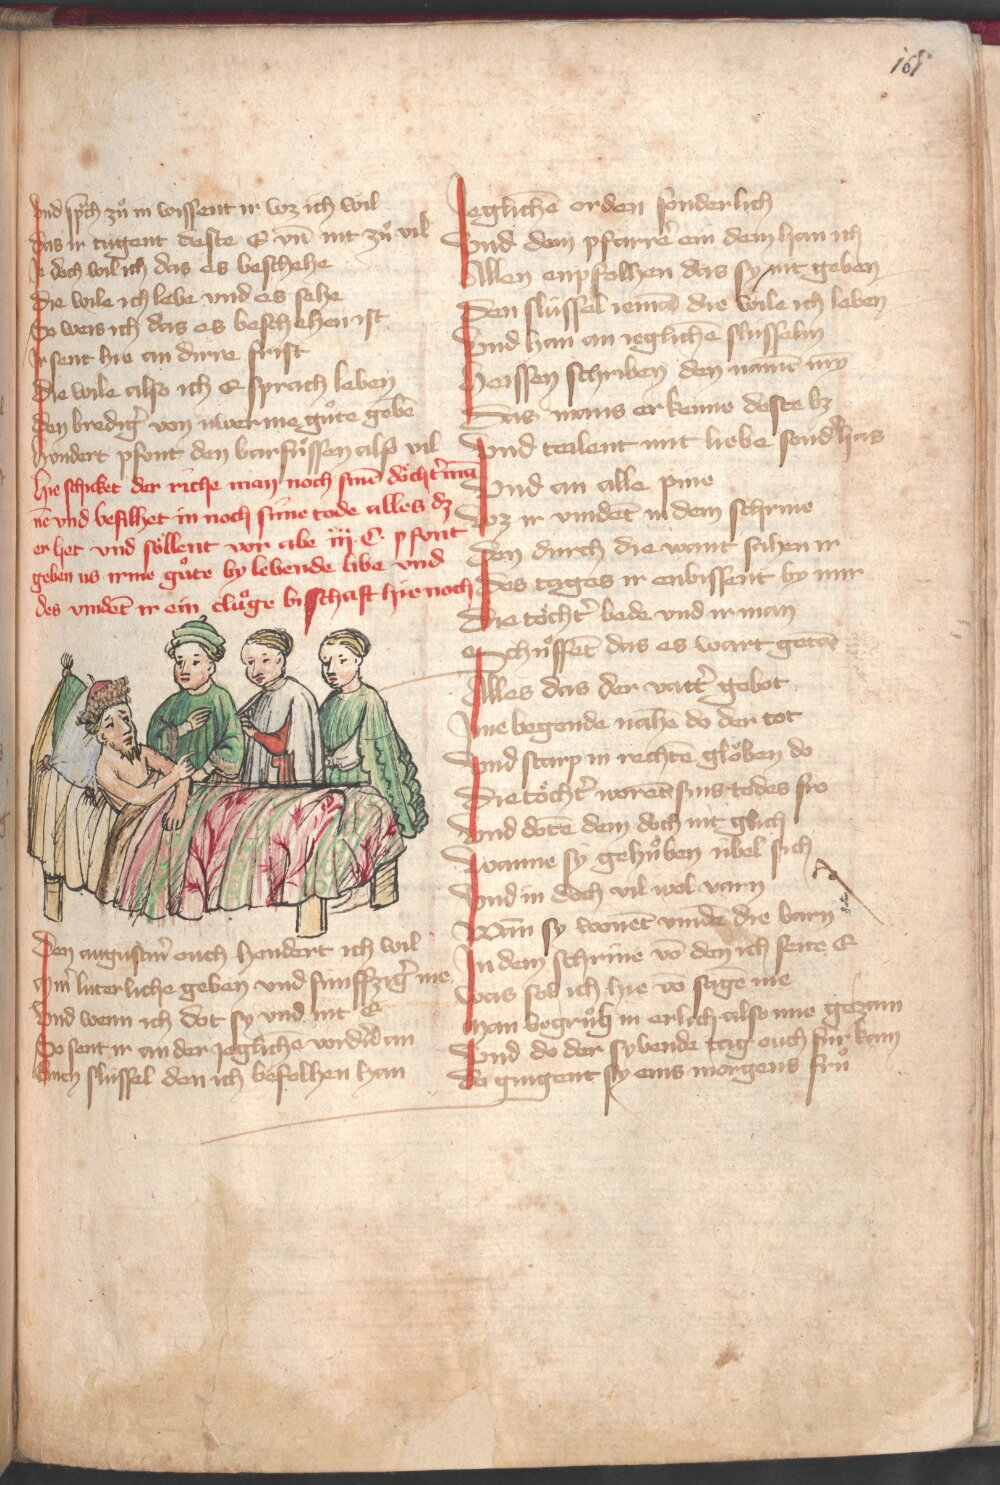 165
Vnd sp̄ch zů in wissent ir wz ich wil
Das ir tugent deste E vn̄ nit zů vil
Je doch wil ich das es beschehe
Die wile ich lebe vnd es sehe
So weis ich das es beschehen ist
Ir sent hie an dirre frist
Die wile also ich E sprach leben
Den brediḡ von uwerme gůte gebē
Hundert pfont den barfůssen also vil
Hie schicket der riche man noch sinē döcht̄ mā
nē vnd befilhet in noch sime tode alles dz
er het vnd söllent vor abe iij C pfont
geben us irme gůte by lebende libe vnd
des vindēt ir ein clůge bischaft hie noch
Den augustin̄ ouch hundert ich wil
luterliche geben vnd fünffziḡ me
Vnd wenn ich dot sy vnd nit E
So sent ir an der jeglichē vordrā an
Einen slüssel den ich befolhen han
Jeglichē orden sonderlich
Vnd dem pfarrē ein dem han ich
Allen enpfolhen das sy nit geben
Den slüssel iemā die wile ich leben
Vnd han an ieglichē slüsselin
Heissen schriben den namē min
Das mans erkenne deste bz
Vnd teilent mit liebe sond̄ has
Vnd an alle pine
Wz ir vindēt in dem schrine
Den durch die want sahen ir
Des tages ir enbissent by mir
Die töcht̄ bede vnd ir man
Schůffēt das es wart getā
Alles das der vatt̄ gebot
Ime begonde nahē do der tot
Vnd starp in rechtē glöben do
Die töcht̄ worēt sins todes fro
Vnd dotē dem doch nit glich
Wanne sy gehůben übel sich
Vnd in doch vil wol varn
Wan sy wonēt vindē die barn
In dem schrine vō den ich seite E
Was sol ich hie vō sagē me
Man begrůb in erlich also ime gezam
Vnd do der sybende tag ouch für kam
Do gingent sy eins morgens frů